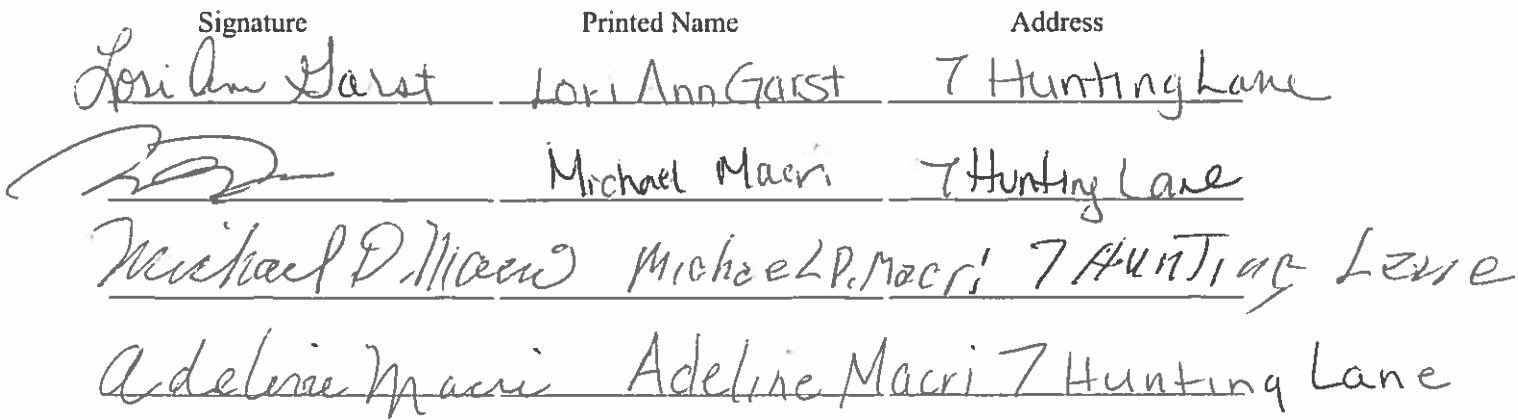 Signature Printed Name Address
Lori Ann Garst Lori Ann Garst 7 Hunting Lane
Michael Macri 7 Hunting Lane
Michael P. Macri Michael P. Macri 7 Hunting Lane
Adeline Macri Adeline Macri 7 Hunting Lane